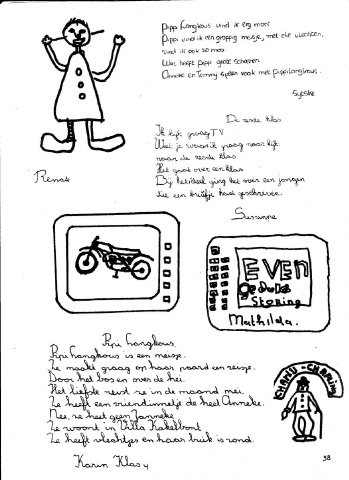 Pippi Langkous vind ik erg mooi
Pippi vind ik een grappig meisje, met die vlechten,
vind ik ook zo mooi.
Wat heeft pippi grote schoenen.
Anneke en Tommy spelen vaak met pippilangkous.
Sytske
De zesde klas
Ik kijk graag TV
Weet je waar ik graag naar kijk
naar de zesde klas
Het gaat over een klas
Bij het deel ging het over een jongen
die een briefje had geschreven.
Renate
Susanne
EVEN
geduld
Storing
Mathilda.
Pipi Langkous.
Pipi Langkous is een meisje.
Ze maakt graag op haar paard een reisje.
Door het bos en over de hei.
Het liefste reist ze in de maand mei.
Ze heeft een vriendinnetje die heet Anneke.
Nee, ze heet geen Janneke
Ze woont in Villa Kakelbont
Ze heeft vlechtjes en haar buik is rond.
Karin Klas 4
CHARLY-CHAPLIN
38